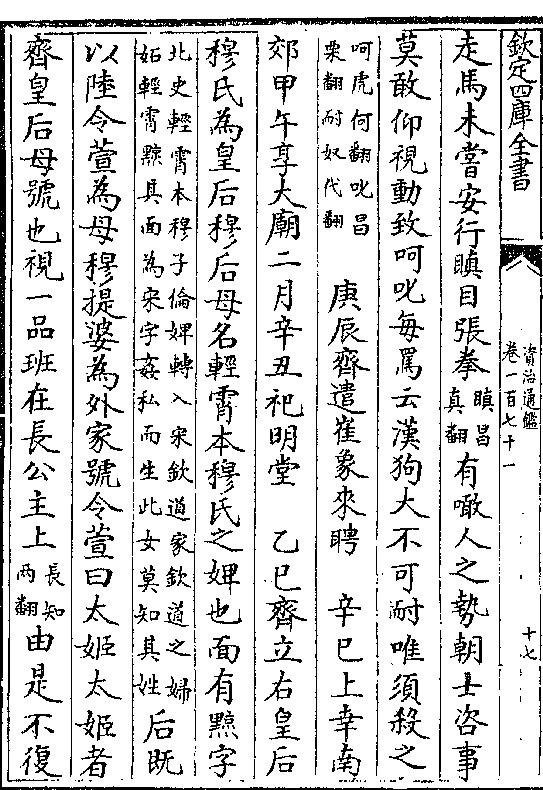 欽定四庫全書
資治通鑑
卷一百七十一
十七
走馬未嘗安行瞋目張拳瞋昌真翻有噉人之勢朝士咨事
莫敢仰視動致呵叱每罵云漢狗大不可耐唯須殺之
呵虎何翻叱昌栗翻耐奴代翻　庚辰齊遣崔象來聘　辛巳上幸南
郊甲午享大廟二月辛丑祀明堂　乙巳齊立右皇后
穆氏為皇后穆后母名輕霄本穆氏之婢也面有黥字
北史輕霄本穆子倫婢轉入宋欽道家欽道之婦妬輕霄黥其面為宋字姦私而生此女莫知其姓后既
以陸令萱為母穆提婆為外家號令萱曰太姬太姬者
齊皇后母號也視一品班在長公主上長知兩翻由是不復